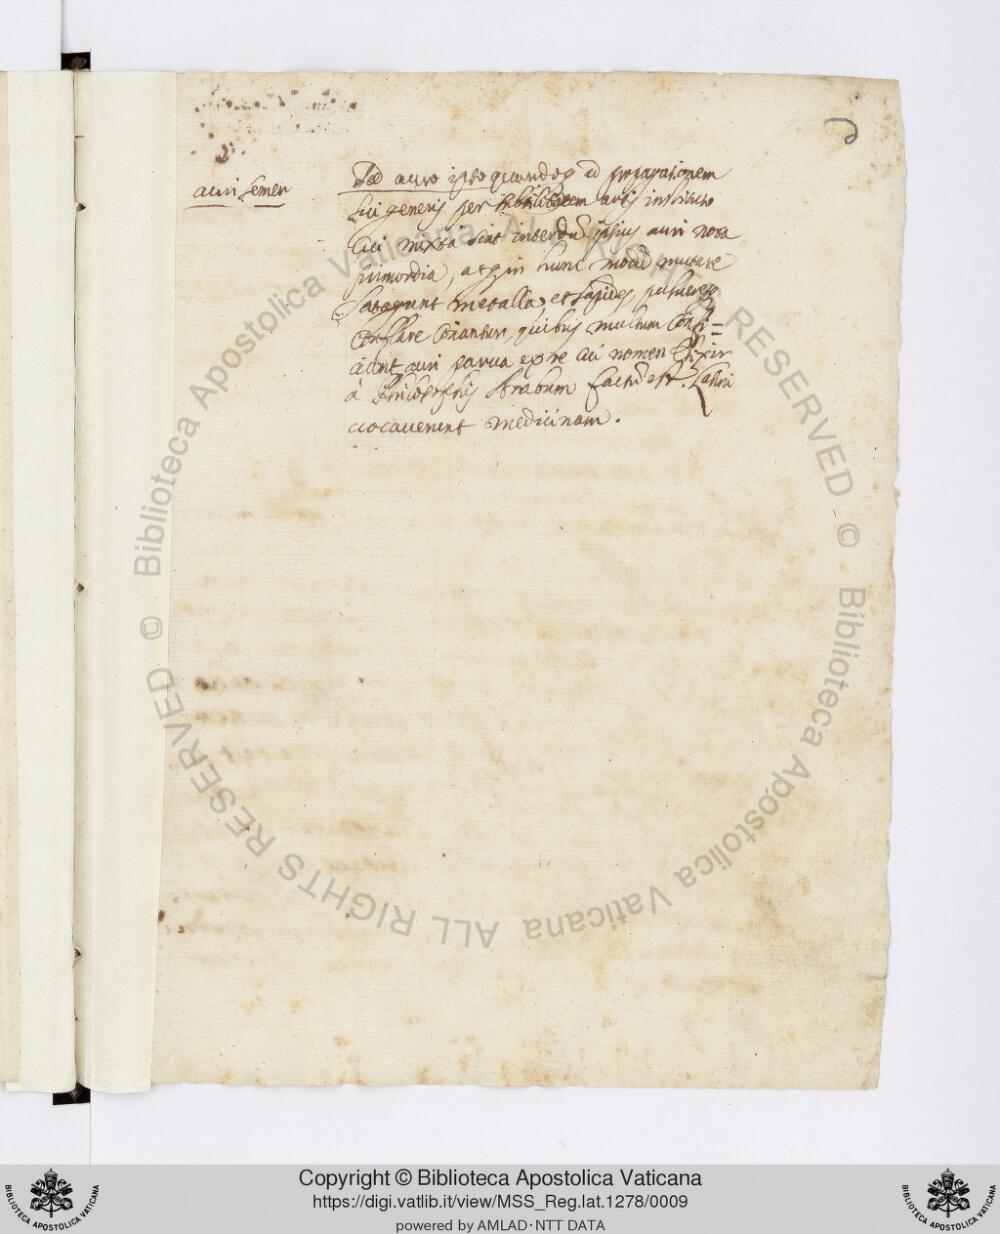 auri semen
De auro ipso quandoq ad propagationem
sui generis per artis institutio
cui mixta sint interdũ ipsius auri nova
primordia, atqui hunc modũ mutare
satagunt metalla, et lapides, pulveresq
conflare conantur, quibus multum confi=
ciunt auri parva ex re cui nomen Elixir
à Philosophis Arabum factũ est. Latini
vocaverunt medicinam.
© Biblioteca Apostolica Vaticana ALL RIGHTS RESERVED © Biblioteca Apostolica Vaticana ALL RIGHTS RESERVED
Copyright © Biblioteca Apostolica Vaticana
https://digi.vatlib.it/view/MSS_Reg.lat.1278/0009
powered by AMLAD·NTT DATA
BIBLIOTECA APOSTOLICA VATICANA
BIBLIOTECA APOSTOLICA VATICANA